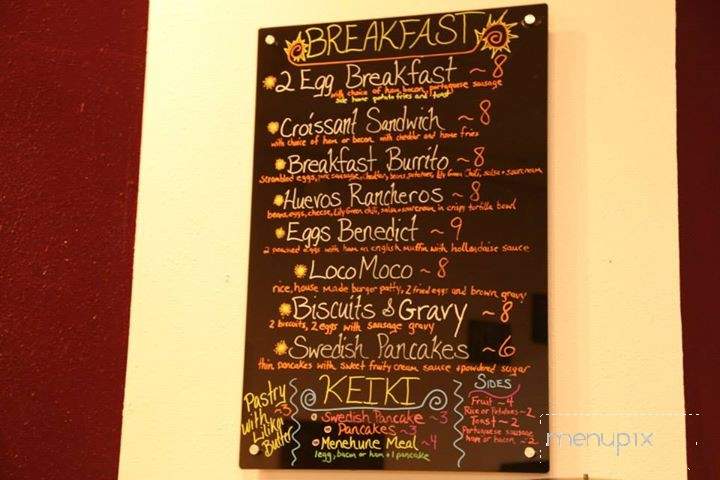 BREAKFAST
2 Egg Breakfast ~ 8
with choice of ham, bacon, portuguese sausage
side home potato fries and toast
Croissant Sandwich ~ 8
with choice of ham or bacon with cheddar and home fries
Breakfast Burrito ~ 8
scrambled eggs, pork sausage, cheddar, beans, potatoes, Lily Green Chili, salsa + sour cream
Huevos Rancheros ~ 8
beans, eggs, cheese, Lily Green chili, salsa + sour cream in crisp tortilla bowl
Eggs Benedict ~ 9
2 poached eggs with ham on english muffin with hollandaise sauce
Loco Moco ~ 8
rice, house made burger patty, 2 fried eggs and brown gravy
Biscuits & Gravy ~ 8
2 biscuits, 2 eggs with sausage gravy
Swedish Pancakes ~ 6
thin pancakes with sweet fruity cream sauce + powdered sugar
Pastry ~3
with
Lilikoi
Butter
KEIKI
Swedish Pancake ~ 3
Pancakes ~ 3
Menehune Meal ~ 4
1 egg, bacon or ham + 1 pancake
SIDES
Fruit ~ 4
Rice or Potatoes ~ 2
Toast ~ 2
Portuguese sausage
ham or bacon ~ 2
menupix